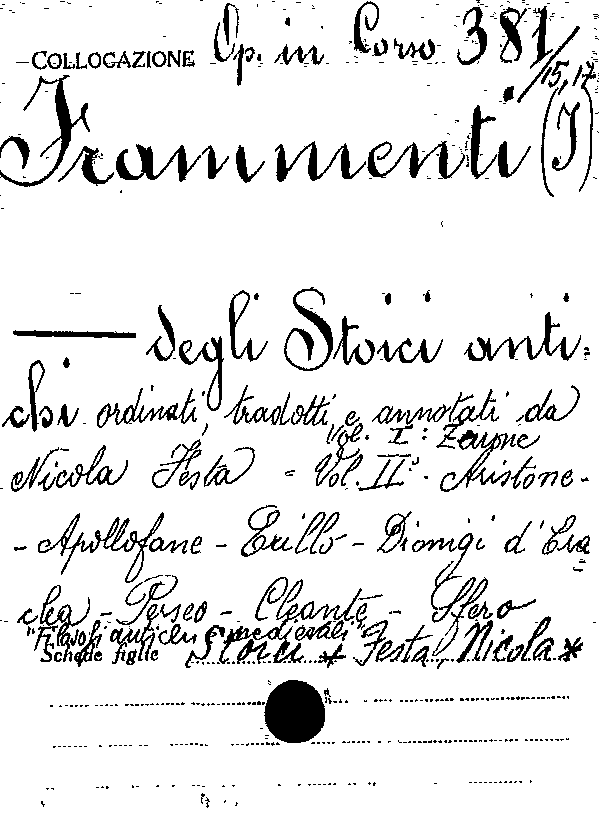 COLLOCAZIONE Op. in Corso 381/15,17
Frammenti (I)
— degli Stoici anti-
chi ordinati, tradotti, e annotati da
Vol. I: Zenone
Nicola Festa = Vol. II°. Aristone-
- Apollofane - Erillo - Dionigi d'Era
clea - Perseo - Cleante - Sfero
"Filosofi antichi e medievali"
Schede figlie Stoici * Festa, Nicola *